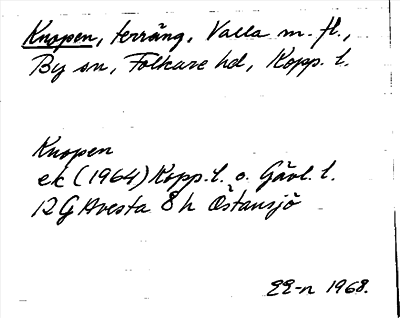 Knopen, terräng, Valla m. fl.,
By sn, Folkare hd, Kopp. l.
Knopen
ek (1964) Kopp. l. o. Gävl. l.
12 G Avesta 8 h Östansjö
1968.